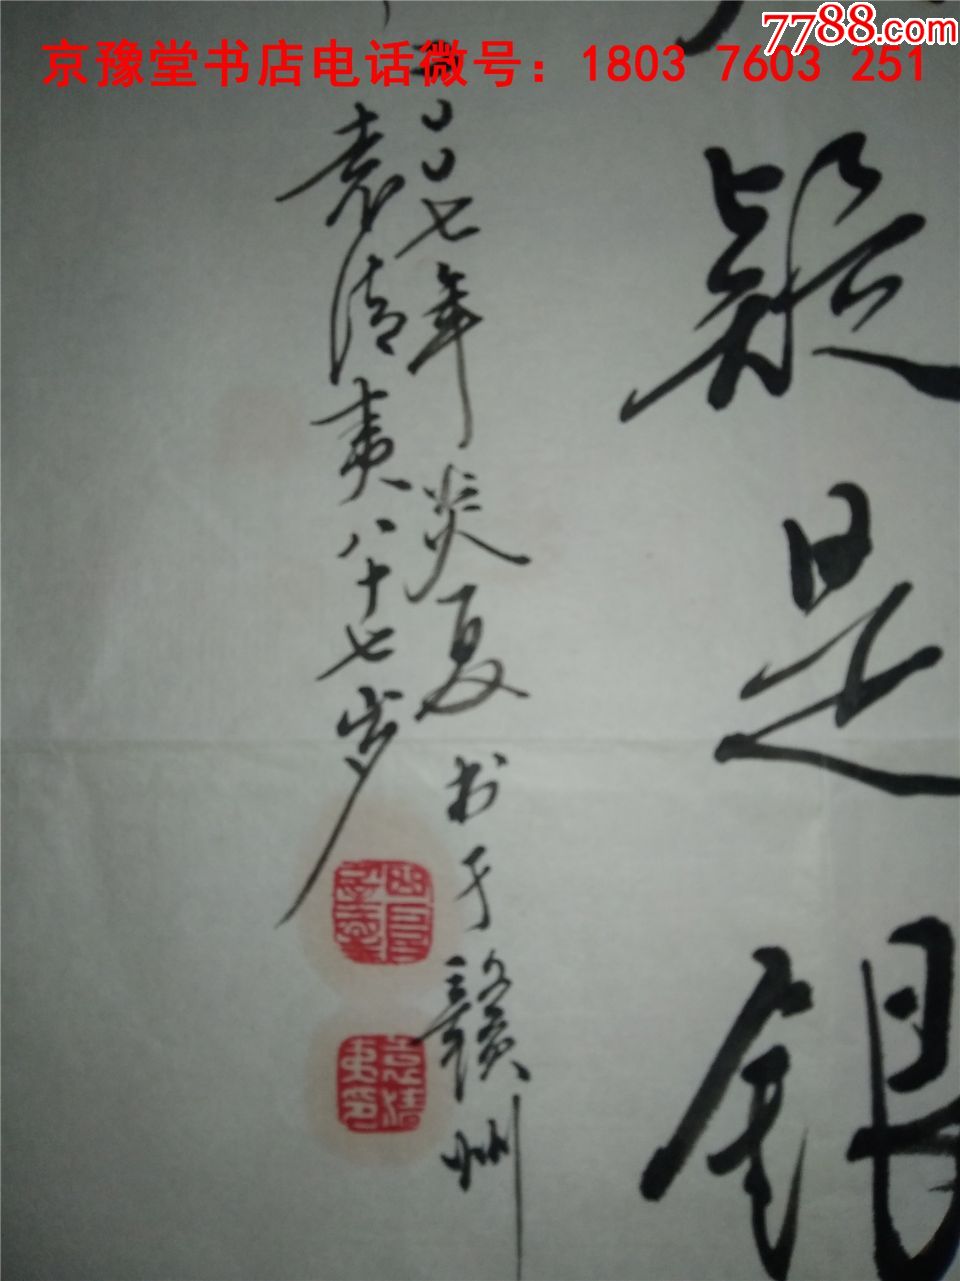 7788.com
京豫堂书店电话微号：1803 7603 251
疑是银
二〇〇七年炎夏书于赣州
袁清夷八十七岁